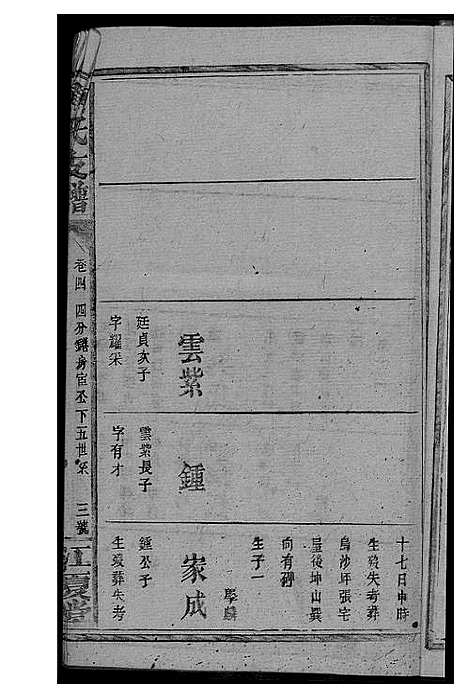 十七日申時
生歿失考葬
烏沙坪張宅
屋後坤山巽
向有碑
生子一
學麟
雲紫
廷貞次子
字耀采
鍾
雲紫長子
字有才
家成
鍾公子
生歿葬失考
氏支譜
卷四
四分
房宦公下五世系
三號
江夏堂